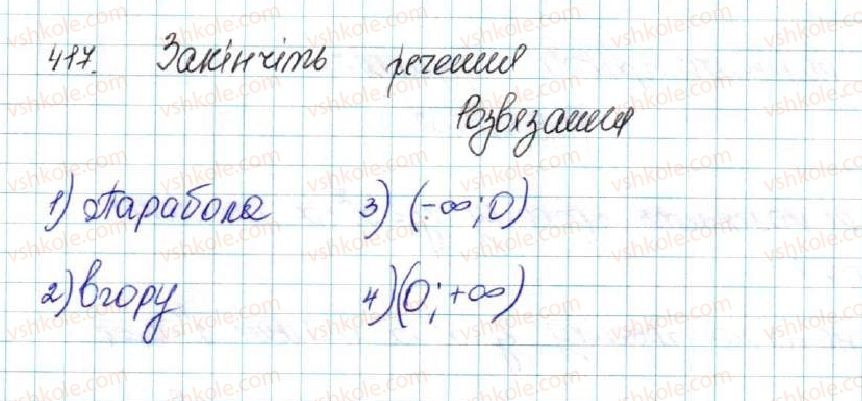 417. Закінчіть речення
Розвязання
1) Парабола 3) (-∞; 0)
2) вгору 4) (0; +∞)